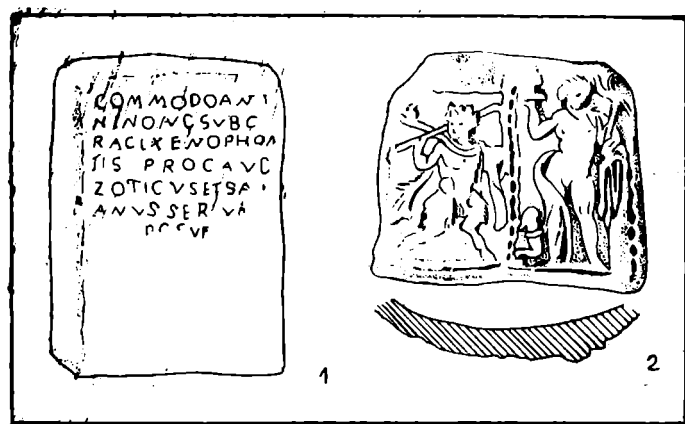 COMMODOANT
NINONCSVBC
RACIXENOPHON
TIS PROCAVC
ZOTICVSETSA
ANVSSERVA
1
2